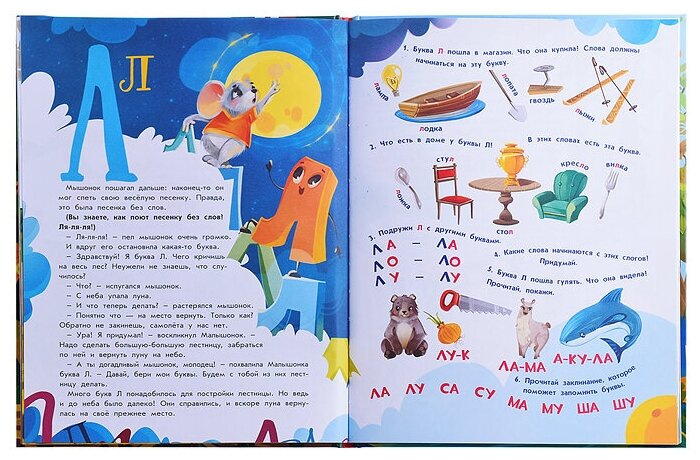 Л л
Мышонок пошагал дальше: наконец-то он
мог спеть свою весёлую песенку. Правда,
это была песенка без слов.
(Вы знаете, как поют песенку без слов!
Ля-ля-ля!)
– Ля-ля-ля! – пел мышонок очень громко.
И вдруг его остановила какая-то буква.
– Здравствуй! Я буква Л. Чего кричишь
на весь лес? Неужели не знаешь, что слу-
чилось?
– Что? – испугался мышонок.
– С неба упала луна.
– И что теперь делать? – растерялся мышонок.
– Понятно что — на место вернуть. Только как?
Обратно не закинешь, самолёта у нас нет.
– Ура! Я придумал! – воскликнул Малышонок.
Надо сделать большую-большую лестницу, забраться
по ней и вернуть луну на небо.
– А ты догадливый мышонок, молодец! – похвалила Малышонка
буква Л. – Давай, бери мои буквы. Будем с тобой из них лест-
ницу делать.
Много букв Л понадобилось для постройки лестницы. Но ведь
и до неба было далеко! Они справились, и вскоре луна верну-
лась на своё прежнее место.
1. Буква Л пошла в магазин. Что она купила! Слова должны
начинаться на эту букву.
лампа
лодка
лопата
гвоздь
лыжи
2. Что есть в доме у буквы Л! В этих словах есть эта буква.
ложка
стул
стол
кресло
вилка
3. Подружи Л с другими буквами.
ЛА – ЛА
ЛО – ЛО
ЛУ – ЛУ
4. Какие слова начинаются с этих слогов!
Придумай.
5. Буква Л пошла гулять. Что она видела!
Прочитай, покажи.
ЛУ-К
ЛА-МА
А-КУ-ЛА
6. Прочитай заклинание, которое
поможет запомнить буквы.
ЛА ЛУ СА СУ МА МУ ША ШУ